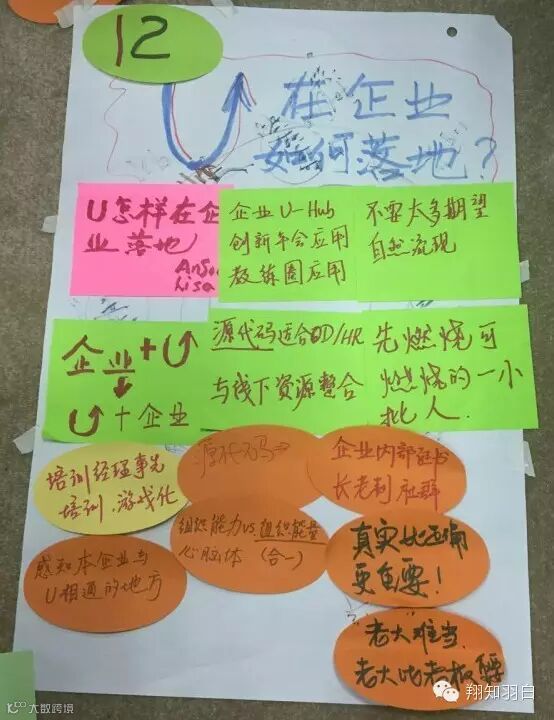 12
U 在企业
如何落地？
U怎样在企
业落地
Lisa
企业 U-Hub
创新年会应用
教练圈应用
不要太多期望
自然流现
企业+U
U+企业
源代码适合OD/HR
与线下资源整合
先燃烧可
燃烧的一小
批人.
培训经理事先
培训、游戏化
源代码→
企业内部
长老制 社群
组织能力vs组织能量
心脑体 (合一)
真实比
更重要!
感知本企业与
U相通的地方
老大难当
老大比老板
翔知羽白
大数跨境